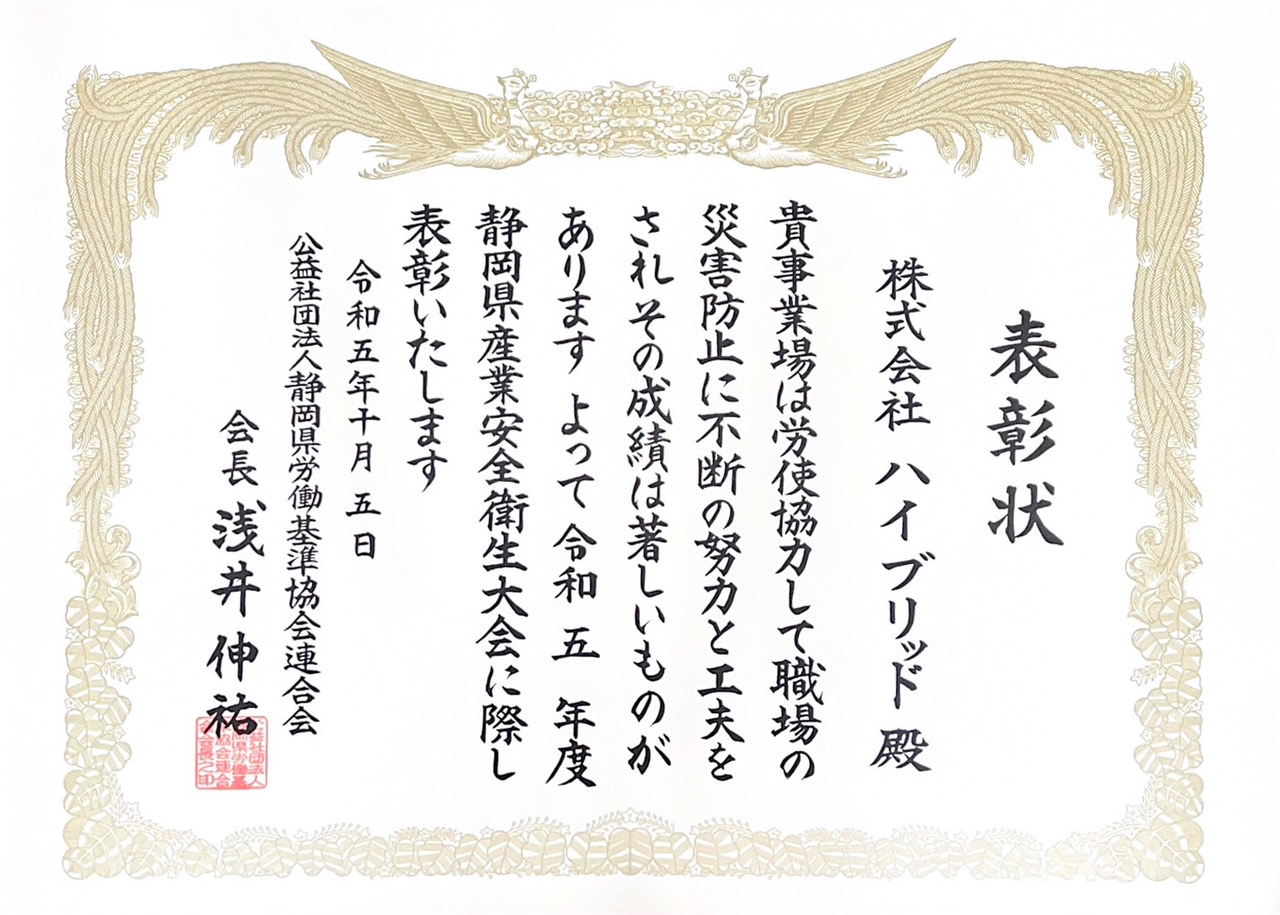 表彰状
株式会社 ハイブリッド 殿
貴事業場は労使協力して職場の
災害防止に不断の努力と工夫を
され その成績は著しいものが
あります よって 令和 五 年度
静岡県産業安全衛生大会に際し
表彰いたします
令和五年十月 五 日
公益社団法人静岡県労働基準協会連合会
会長 浅井 伸祐